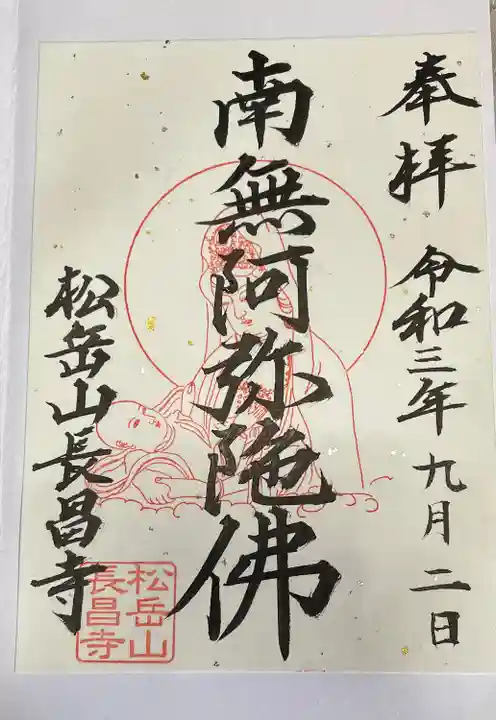 奉拝 令和三年九月二日
南無阿弥陀佛
松岳山長昌寺
松岳山
長昌寺